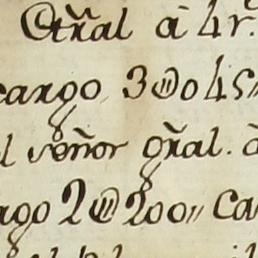 Gtr̃al à 4 r.
cargo 3@045"
l señor gr̃al. à
argo 2@200" Ca